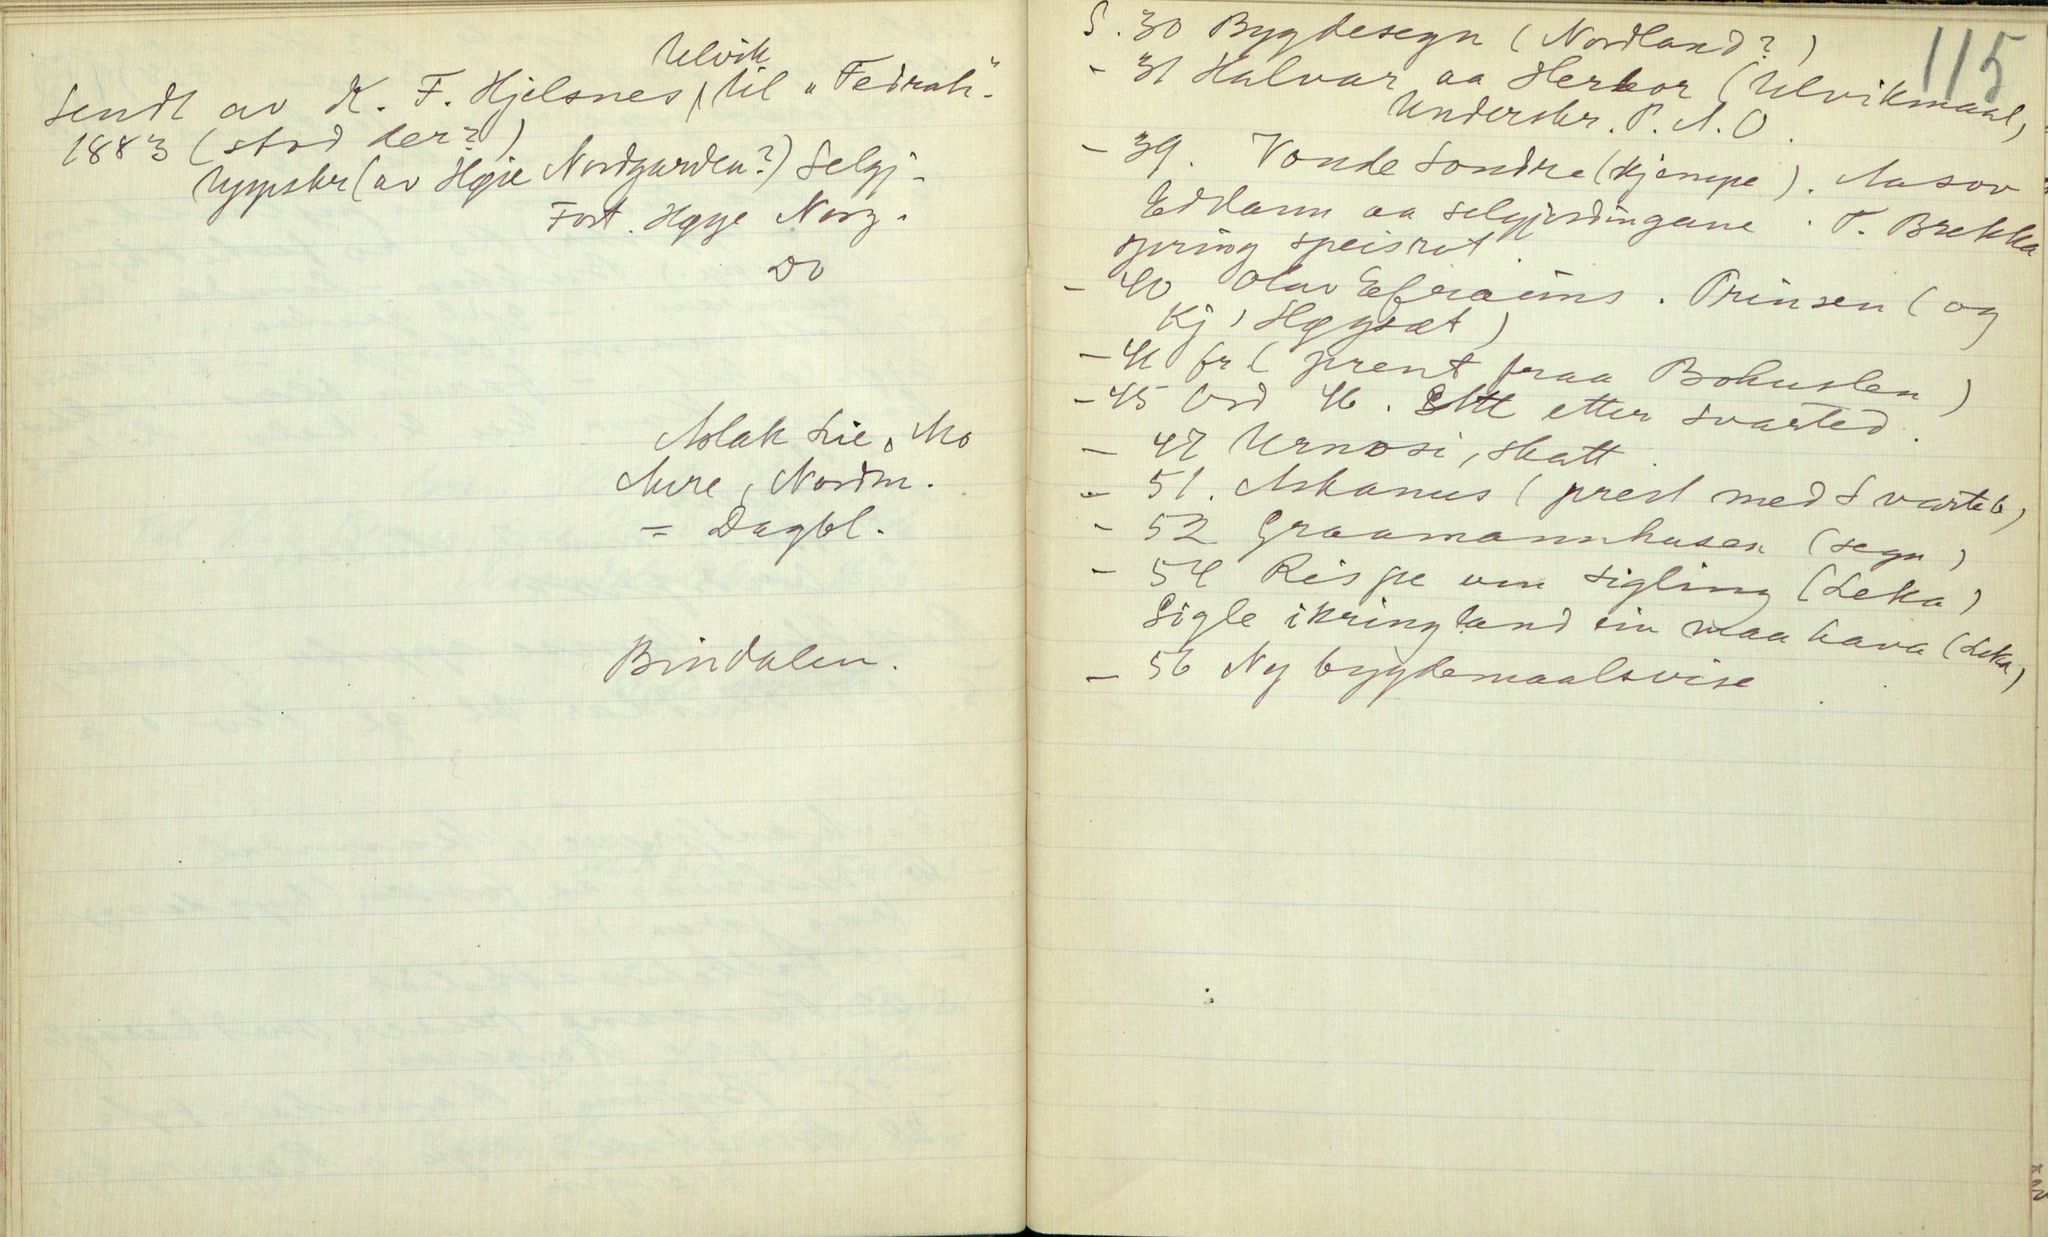 Ulvik
Sendt av K. F. Hjelsnes, til "Fedrah."
1883 (stod der?)
Uppskr (av Høye Nordgarden?) Selgj.
Fort. Høye Norg.
Do
Aslak Lie, Mo
Aure, Nordm.
= Dagbl.
Bindalen.
115
S. 30 Bygdesegn (Nordland?)
- 31 Halvar aa Herbor (Ulvikmaal,
Underskr. P. A. O.
- 39. Vonde Sondre (Kjempe). Aasov
Eddann aa selgjordingane. T. Brekka
spring speisrot.
- 40 Olav Efraims. Prinsen (og
Kj, Høysæt)
- 41 fr ( prent fraa Bohuslen)
- 45 Ord 46. Ett etter Svarteb.
- 47 Urnosi, skatt.
- 51. Askanus (prest med Svarteb)
- 52 Graamannhusen (segn)
- 54 Reispe um sigling (Leka)
Sigle ikring land ein maa hava (Leka)
- 56 Ny bygdemaalsvise